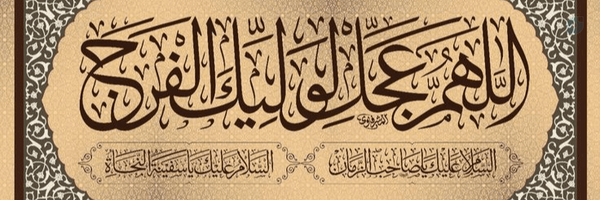 اللَّهُمَّ عَجِّل لِوَلِيِّكَ الفَرَج
السَّلامُ عَلَيْكَ يا صاحِبَ الزَّمان
السَّلامُ عَلَيْكَ يا سَفِينَةَ النَّجاة